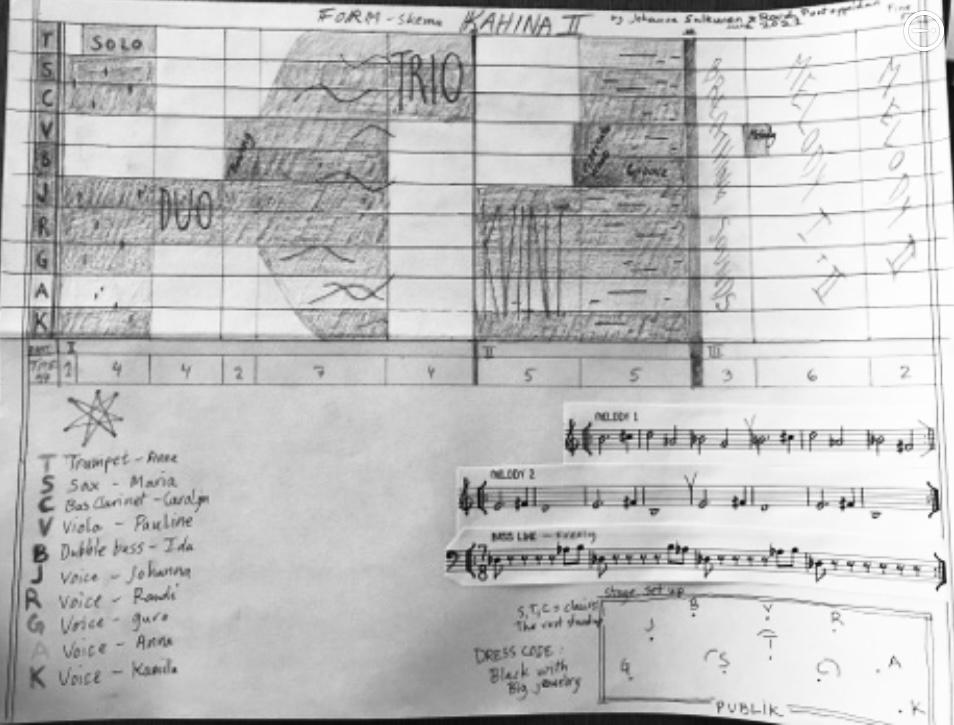 FORM - skema KAHINA II by Johanna Sulkunen & Randi Pontoppidan
June 2021 Fine
T SOLO
S TRIO
C
V Melody
B Groove
J
R DUO
G
A
K
PART I II III
TIME 1 4 4 2 7 4 5 5 3 6 2
MELODY II
MELODY II
T Trumpet - Anne
S Sax - Maria
C Bas Clarinet - Carolyn
V Viola - Pauline
B Dubble bass - Ida
J Voice - Johanna
R Voice - Randi
G Voice - guro
A Voice - Anna
K Voice - Kamilla
MELODY 1
MELODY 2
BASS LINE - Evenly
7
8
stage set up
S, T, C = chairs
The rest standup
DRESS CODE:
Black with
Big jewelry
B V R
J T
G S C A
K
PUBLIK